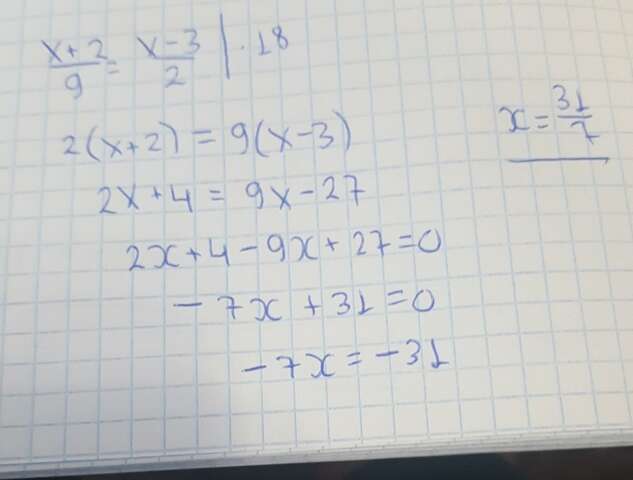 x+2/9 = x-3/2 | · 18
2(x+2) = 9(x-3)
2x+4 = 9x-27
2x+4-9x+27=0
-7x+31=0
-7x=-31
x=31/7